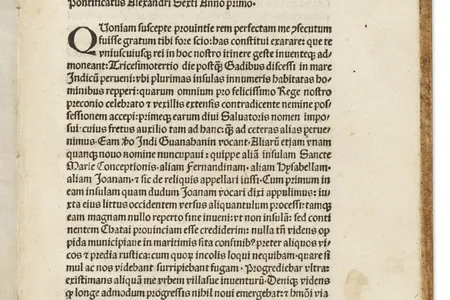 Pontificatus Alexandri Sexti Anno primo.
Quoniam suscepte prouintie rem perfectam me ꝯsecutum
fuisse gratum tibi fore scio: has constitui exarare: que te
vniuscuiusqꝫ rei in hoc nostro itinere geste inuenteqꝫ ad-
moneant: Tricesimotertio die postqꝫ̃ Gadibus discessi in mare
Indicũ perueni: vbi plurimas insulas innumeris habitatas ho-
minibus repperi: quarum omnium pro felicissimo Rege nostro
preconio celebrato ⁊ vexillis extensis contradicente nemine pos-
sessionem accepi: primeqꝫ earum diui Saluatoris nomen impo-
sui: cuius fretus auxilio tam ad hanc: qꝫ̃ ad ceteras alias perue-
nimus. Eam ꝟo Indi Guanahanin vocant. Aliarũ etiam vnam
quanqꝫ nouo nomine nuncupaui: quippe aliã insulam Sancte
Marie Conceptionis. aliam Fernandinam. aliam Hysabellam.
aliam Joanam. ⁊ sic de reliquis appellari iussi. Cum primum in
eam insulam quam dudum Joanam vocari dixi appulimus: iu-
xta eius littus occidentem versus aliquantulum processi: tamqꝫ
eam magnam nullo reperto fine inueni: vt non insulã: sed conti
nentem Chatai prouinciam esse crediderim: nulla tñ videns op
pida municipiaue in maritimis sita confinibꝰ preter aliquos vi-
cos ⁊ predia rustica: cum quoꝝ incolis loqui nequibam. quare si
mul ac nos videbant surripiebant fugam. Progrediebar vltra:
existimans aliquã me vrbem villasue inuenturũ. Deniqꝫ videns
ꝙ longe admodum progressis nihil noui emergebat: ⁊ hmõi via